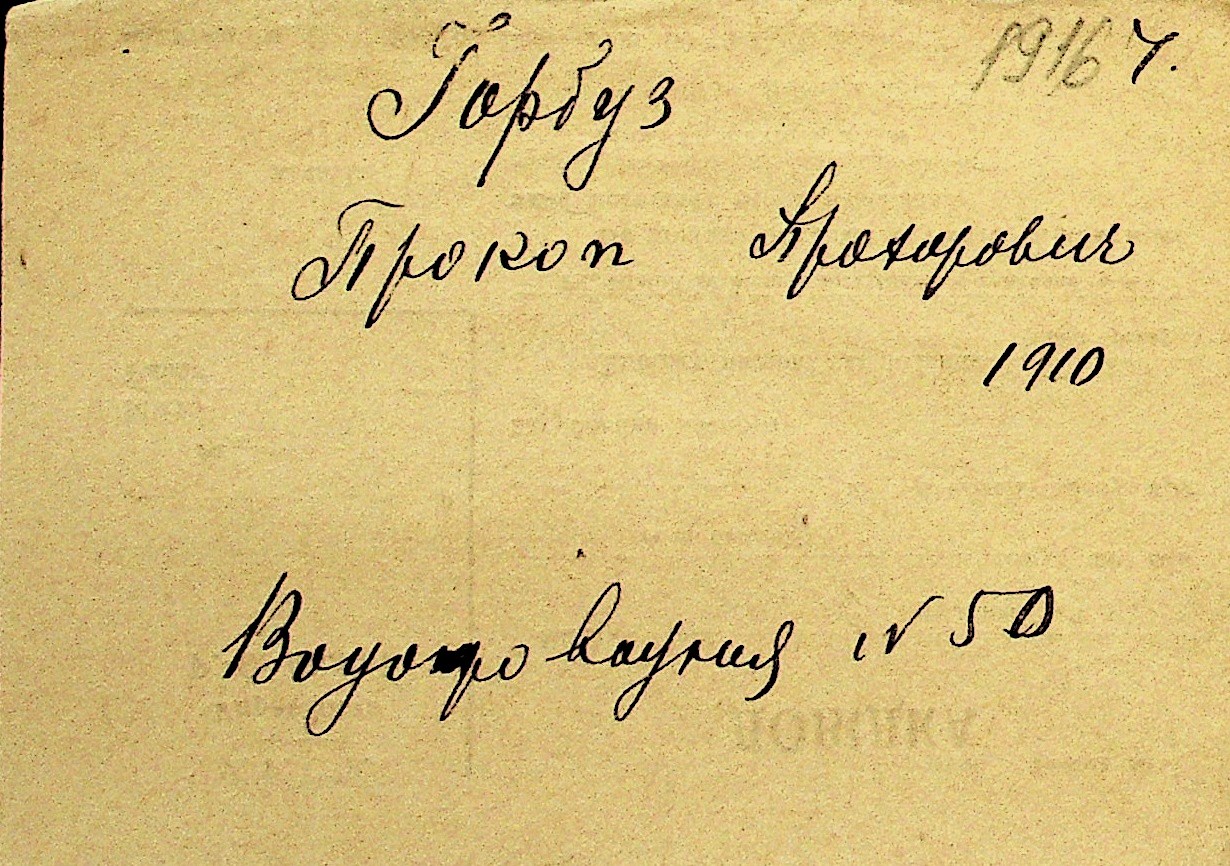 1916 ч.
Горбуз
Прокоп Прохорович
1910
Водопроводная № 50